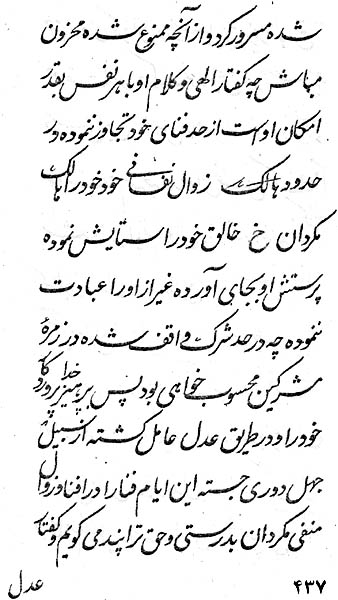 شده مسرور کرد و از آنچه ممنوع شده محزون
مباش چه گفتار الهی و کلام او با هر نفس بقدر
امکان اوست از حد فنای خود تجاوز ننموده در
حدود هالک زوال نفسانی خود خود را هالک
مگردان خ خالق خود را ستایش نموده
پرستش او بجای آورده غیر از او را عبادت
ننموده چه در حد شرک واقف شده در زمرهٔ
مشرکین محسوب خواهی بود پس بپرهیز خدا پروردگار
خود را و در طریق عدل عامل گشته از سبیل
جهل دوری جسته این ایام فنا را در افنا و زوال
منفی مگردان بدرستی و حق ترا پند می گویم و گفتار
۴۳۷ عدل